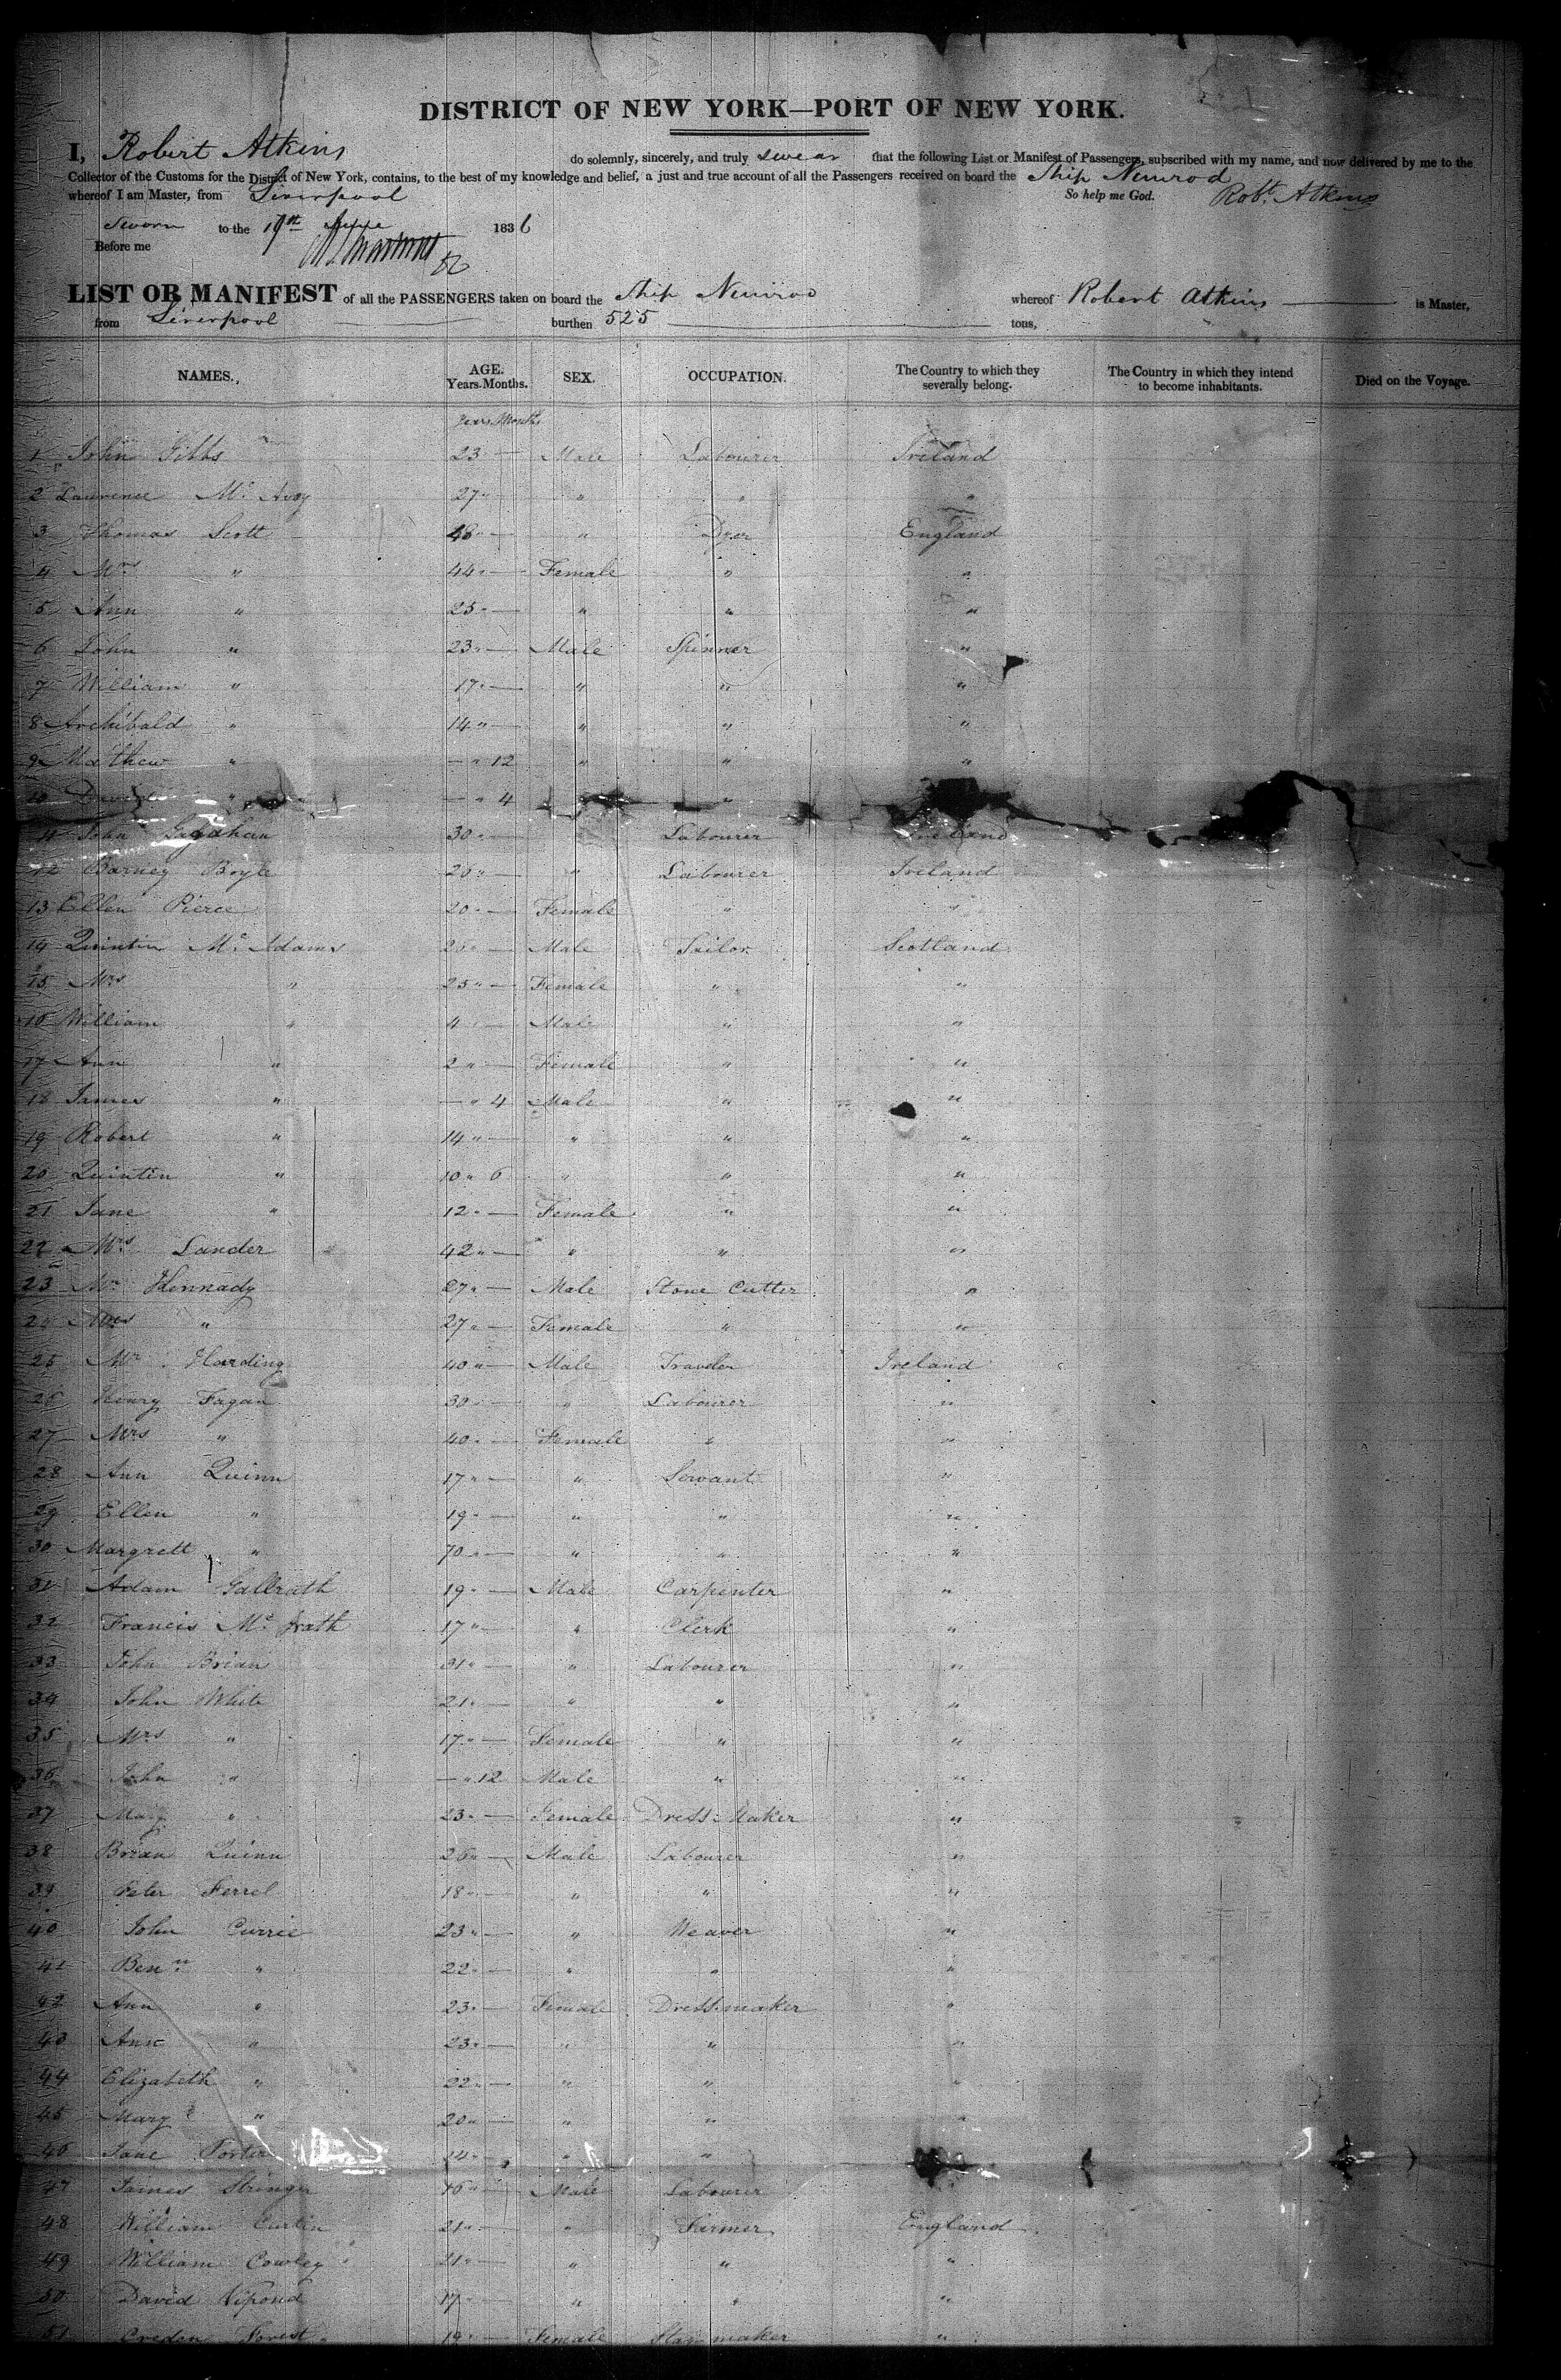 DISTRICT OF NEW YORK—PORT OF NEW YORK.
I, Robert Atkins do solemnly, sincerely, and truly swear that the following List or Manifest of Passengers, subscribed with my name, and now delivered by me to the
Collector of the Customs for the District of New York, contains, to the best of my knowledge and belief, a just and true account of all the Passengers received on board the Ship Nimrod
whereof I am Master, from Liverpool So help me God. Robt. Atkins
Sworn to the 19th 1836
Before me
LIST OR MANIFEST of all the PASSENGERS taken on board the Ship Nimrod whereof Robert Atkins is Master,
from Liverpool burthen 525 tons,
NAMES. AGE. Years. Months. SEX. OCCUPATION. The Country to which they severally belong. The Country in which they intend to become inhabitants. Died on the Voyage.
Years Months
1 John Gibbs 23 — Male Labourer Ireland
2 Laurence Mc Avoy 27 " " " "
3 Thomas Scott 48 " — " Dyer England
4 Mrs " 44 " — Female " "
5 Ann " 25 " — " " "
6 John " 23 " — Male Spinner "
7 William " 17 " — " " "
8 Archibald " 14 " — " " "
9 Mathew " — " 12 " " "
10 David " — " 4 "
11 John 30 " — Labourer Ireland
12 Barney Boyle 26 " — " Labourer Ireland
13 Ellen Pierce 20 " — Female " "
14 Quintin Mc Adams 26 " Male Sailor Scotland
15 Mrs " 25 " — Female " "
16 William " 4 " — Male " "
17 Ann " 2 " — Female " "
18 James " — " 4 Male " "
19 Robert " 14 " — " " "
20 Quintin " 10 " 6 " " "
21 Jane " 12 " — Female " "
22 Mrs Lander 42 " — " " "
23 Mr Hennady 27 " — Male Stone Cutter "
24 Mrs " 27 " — Female " "
25 Mr Harding 40 " — Male Traveler Ireland
26 Henry Fagan 30 " — " Labourer "
27 Mrs " 40 " — Female " "
28 Ann Quinn 17 " — " Servant "
29 Ellen " 19 " — " " "
30 Margrett " 70 " — " " "
31 Adam Gallrath 19 " — Male Carpenter "
32 Francis Mc Grath 17 " — " Clerk "
33 John Brian 31 " — " Labourer "
34 John White 21 " — " " "
35 Mrs " 17 " — Female " "
36 John " — " 12 Male " "
37 Mary " 23 " — Female Dress Maker "
38 Brian Quinn 26 " — Male Labourer "
39 Peter Ferrel 18 " — " " "
40 John Currie 23 " — " Weaver "
41 Benn " 22 " — " " "
42 Ann " 23 " — Female Dressmaker "
43 Ann " 23 " — " " "
44 Elizabeth " 22 " — " " "
45 Mary " 20 " — " " "
46 Jane Porter 14 " — " "
47 James Stringer 16 " Male Labourer
48 William Curtin 21 " — " Farmer England
49 William Cowley 21 " — " " "
50 David Vipond 17 " — " " "
51 Forest 19 " — Female "